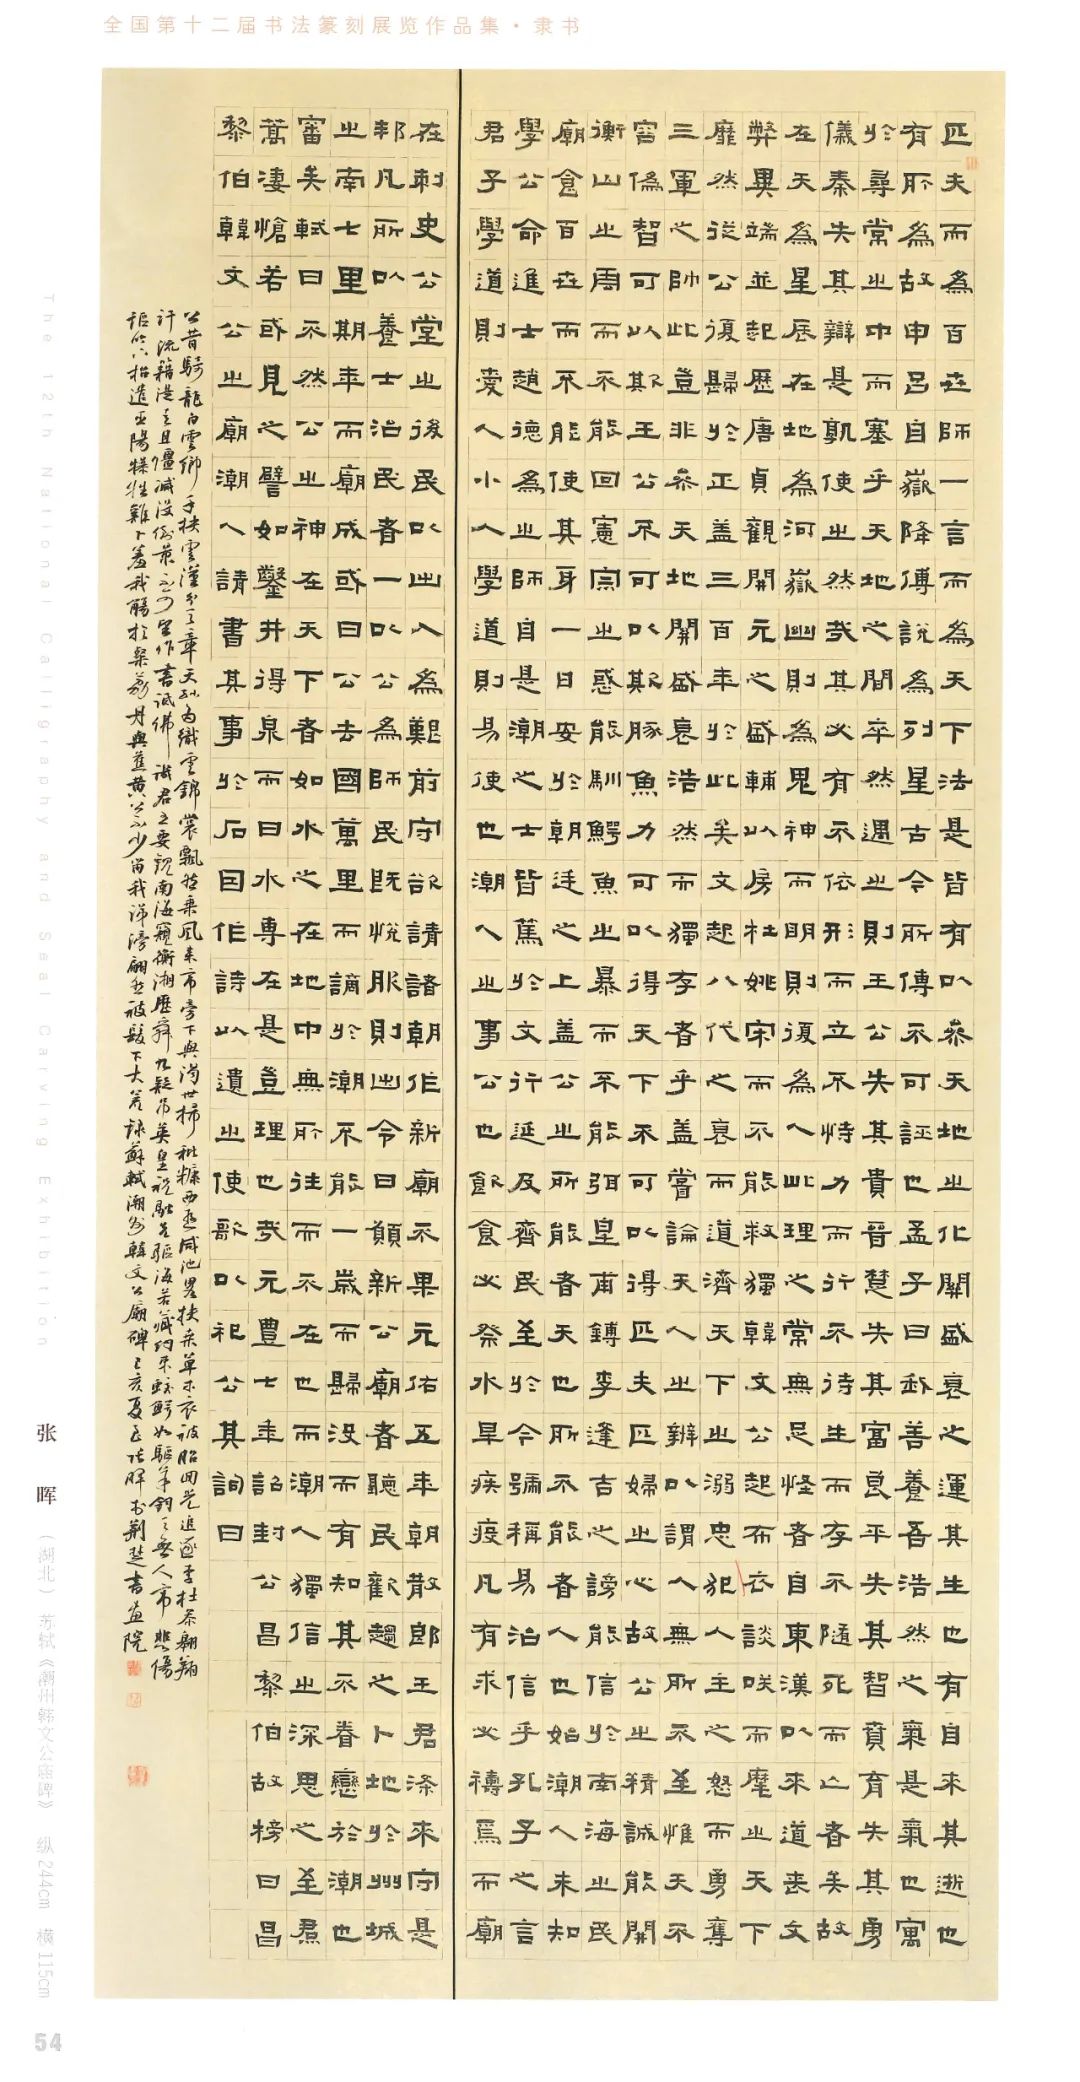 全国第十二届书法篆刻展览作品集·隶书
匹夫而為百世師一言而為天下法是皆有以參天地之化關盛衰之運其生也有自來其逝也
有所為故申呂自嶽降傅說為列星古今所傳不可誣也孟子曰我善養吾浩然之氣是氣也寓
於尋常之中而塞乎天地之間卒然遇之則王公失其貴晉楚失其富良平失其智賁育失其勇
儀秦失其辯是孰使之然哉其必有不依形而立不恃力而行不待生而存不隨死而亡者矣故
在天為星辰在地為河嶽幽則為鬼神而明則復為人此理之常無足怪者自東漢以來道喪文
弊異端並起歷唐貞觀開元之盛輔以房杜姚宋而不能救獨韓文公起布衣談咲而麾之天下
靡然從公復歸於正蓋三百年於此矣文起八代之衰而道濟天下之溺忠犯人主之怒而勇奪
三軍之帥此豈非參天地關盛衰浩然而獨存者乎蓋嘗論天人之辨以謂人無所不至惟天不
容偽智可以欺王公不可以欺豚魚力可以得天下不可以得匹夫匹婦之心故公之精誠能開
衡山之雲而不能回憲宗之惑能馴鱷魚之暴而不能弭皇甫鎛李逢吉之謗能信於南海之民
廟食百世而不能使其身一日安於朝廷之上蓋公之所能者天也所不能者人也始潮人未知
學公命進士趙德為之師自是潮之士皆篤於文行延及齊民至於今號稱易治信乎孔子之言
君子學道則愛人小人學道則易使也潮人之事公也飲食必祭水旱疾疫凡有求必禱焉而廟
在刺史公堂之後民以出入為艱前守欲請諸朝作新廟不果元佑五年朝散郎王君滌來守是
邦凡所以養士治民者一以公為師民既悅服則出令曰願新公廟者聽民歡趨之卜地於州城
之南七里期年而廟成或曰公去國萬里而謫於潮不能一歲而歸沒而有知其不眷戀於潮也
審矣軾曰不然公之神在天下者如水之在地中無所往而不在也而潮人獨信之深思之至焄
蒿淒愴若或見之譬如鑿井得泉而曰水專在是豈理也哉元豐七年詔封公昌黎伯故榜曰昌
黎伯韓文公之廟潮人請書其事於石因作詩以遺之使歌以祀公其詞曰
公昔騎龍白雲鄉手抉雲漢分天章天孫為織雲錦裳飄然乘風來帝旁下與濁世掃秕糠西遊咸池略扶桑草木衣被昭回光追逐李杜參翱翔
汗流籍湜走且僵滅沒倒景不可望作書詆佛譏君王要觀南海窺衡湘歷舜九疑吊英皇祝融先驅海若藏約束蛟鱷如驅羊鈞天無人帝悲傷
謳吟下招遣巫陽犦牲雞卜羞我觴於粲荔丹與蕉黃公不少留我涕滂翩然被髮下大荒錄蘇軾潮州韓文公廟碑己亥夏月張暉於荊楚書畫院
The 12th National Calligraphy and Seal Carving Exhibition
张晖（湖北）苏轼《潮州韩文公庙碑》 纵244cm 横115cm
54